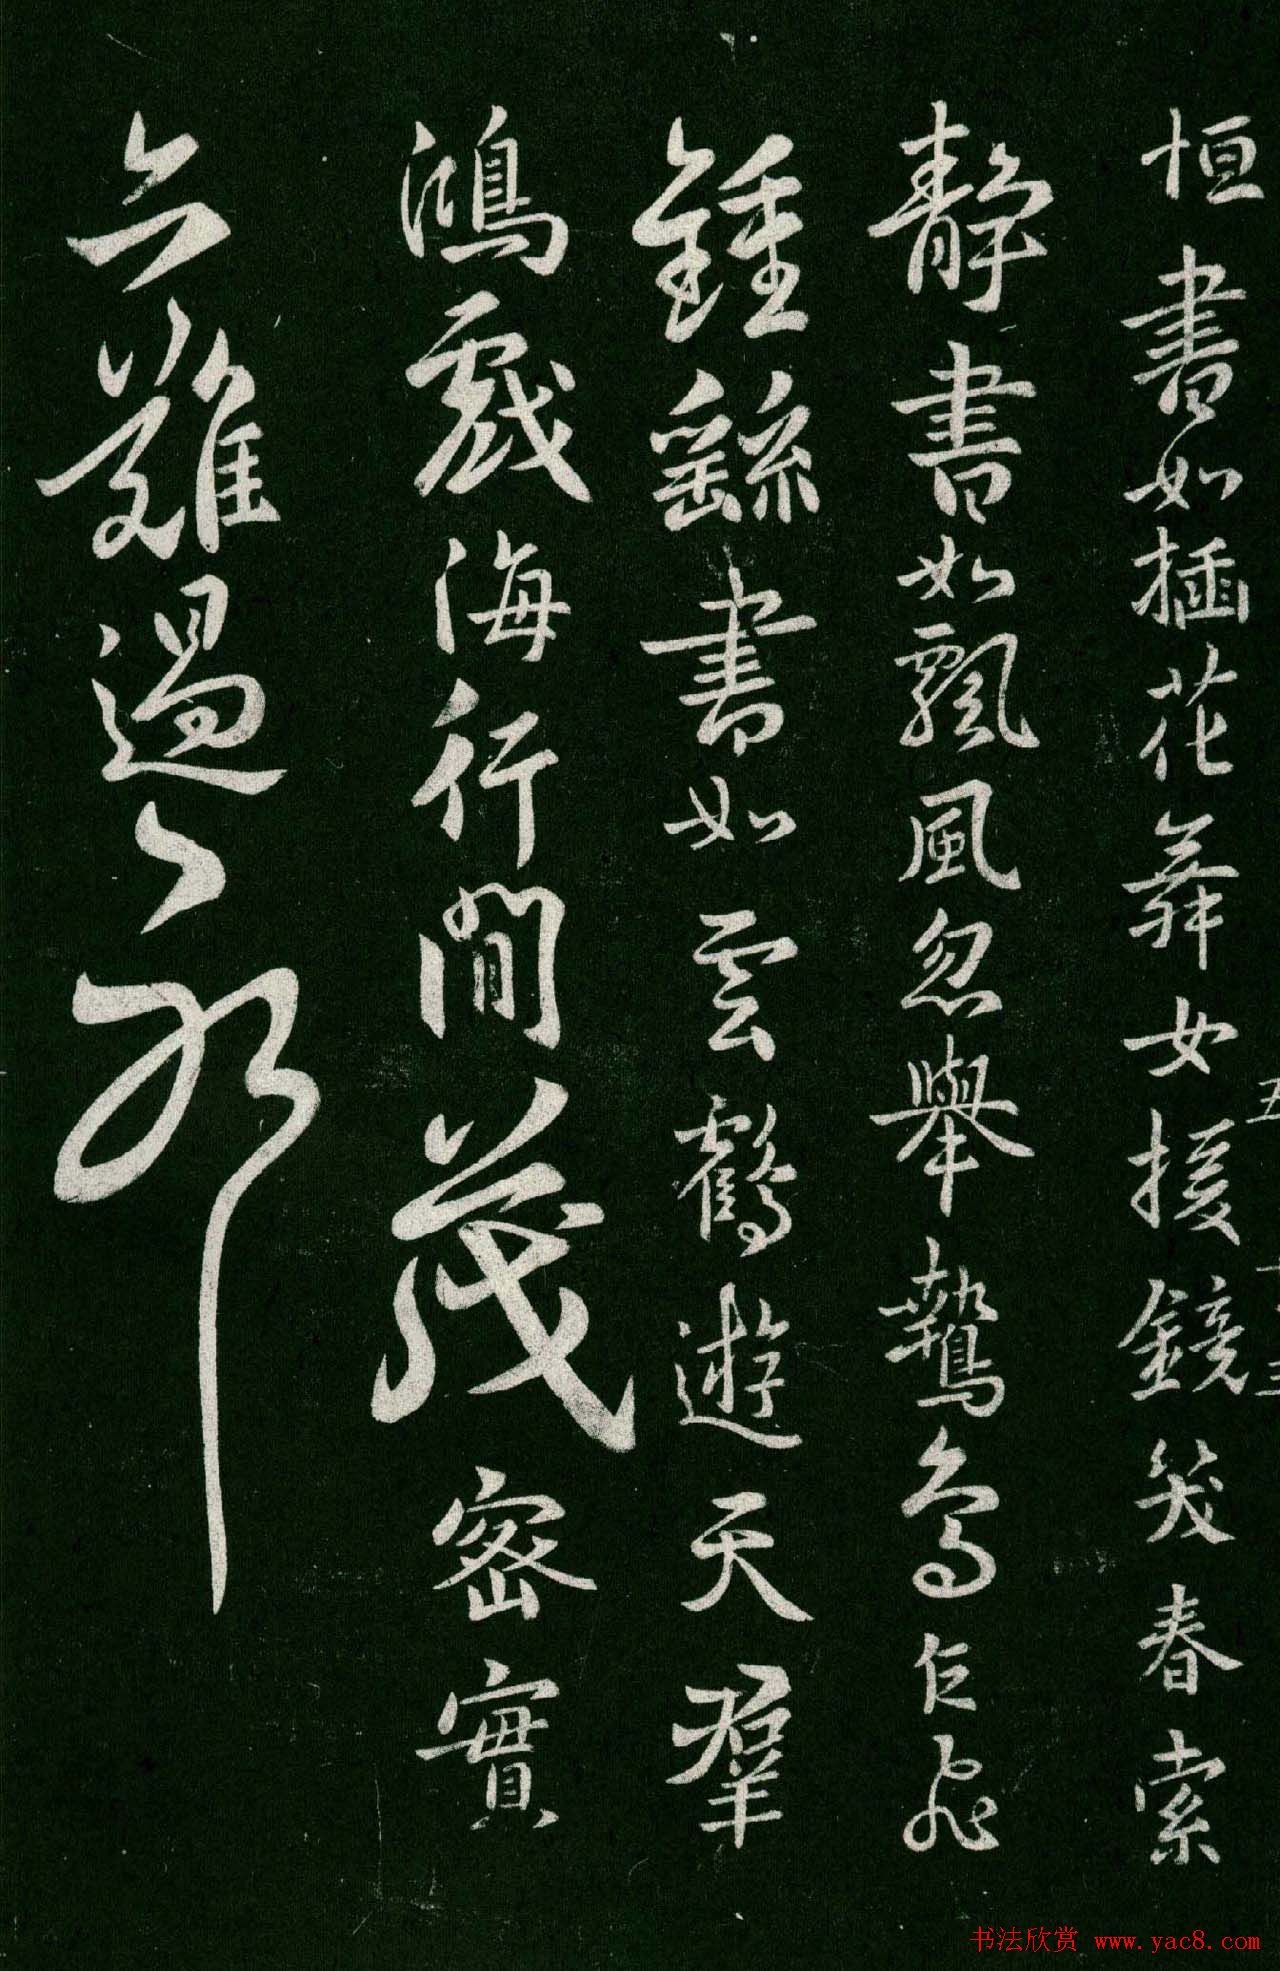 恒書如插花舞女援鏡笑春索
靜書如飄風忽舉鷙鳥乍飛
鍾繇書如雲鵠遊天羣
鴻戲海行間茂密實
亦難過
书法欣赏 www.yac8.com